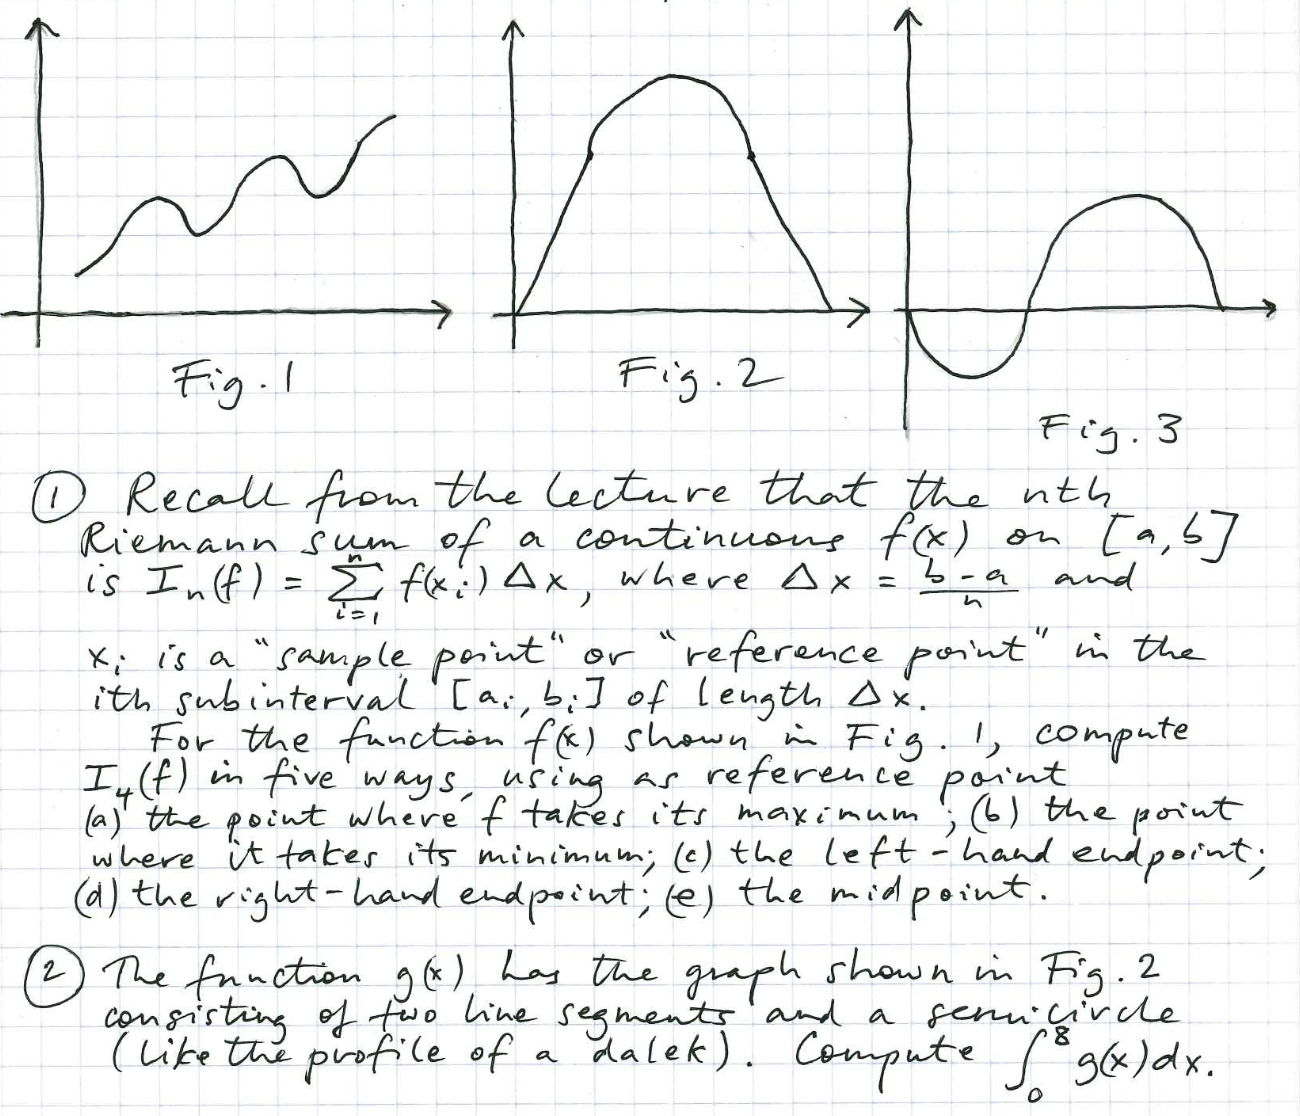 Fig. 1
Fig. 2
Fig. 3
① Recall from the lecture that the nth
Riemann sum of a continuous f(x) on [a,b]
is Iₙ(f) = ∑ⁿᵢ₌₁ f(xᵢ) Δx, where Δx = (b-a)/n and
xᵢ is a "sample point" or "reference point" in the
ith subinterval [aᵢ, bᵢ] of length Δx.
For the function f(x) shown in Fig. 1, compute
I₄(f) in five ways, using as reference point
(a) the point where f takes its maximum; (b) the point
where it takes its minimum; (c) the left-hand endpoint;
(d) the right-hand endpoint; (e) the midpoint.
② The function g(x) has the graph shown in Fig. 2
consisting of two line segments and a semicircle
(like the profile of a dalek). Compute ∫₀⁸ g(x)dx.